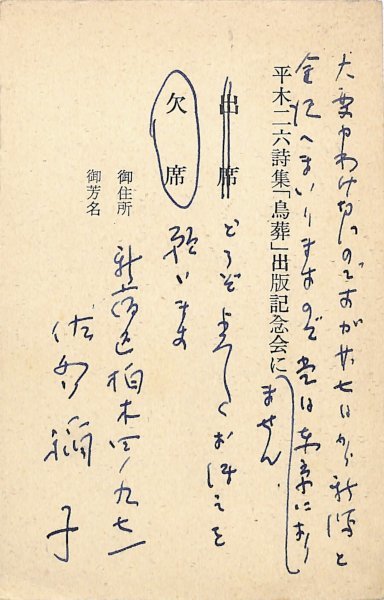 大変申わけないのですが廿七日から新潟と
金沢へまいりますので当日は東京におり
ません。
平木二六詩集「鳥葬」出版記念会に
出席
どうぞよろしくお伝えを
欠席
願います
御住所
新宿区柏木四ノ九七一
御芳名
佐多稲子